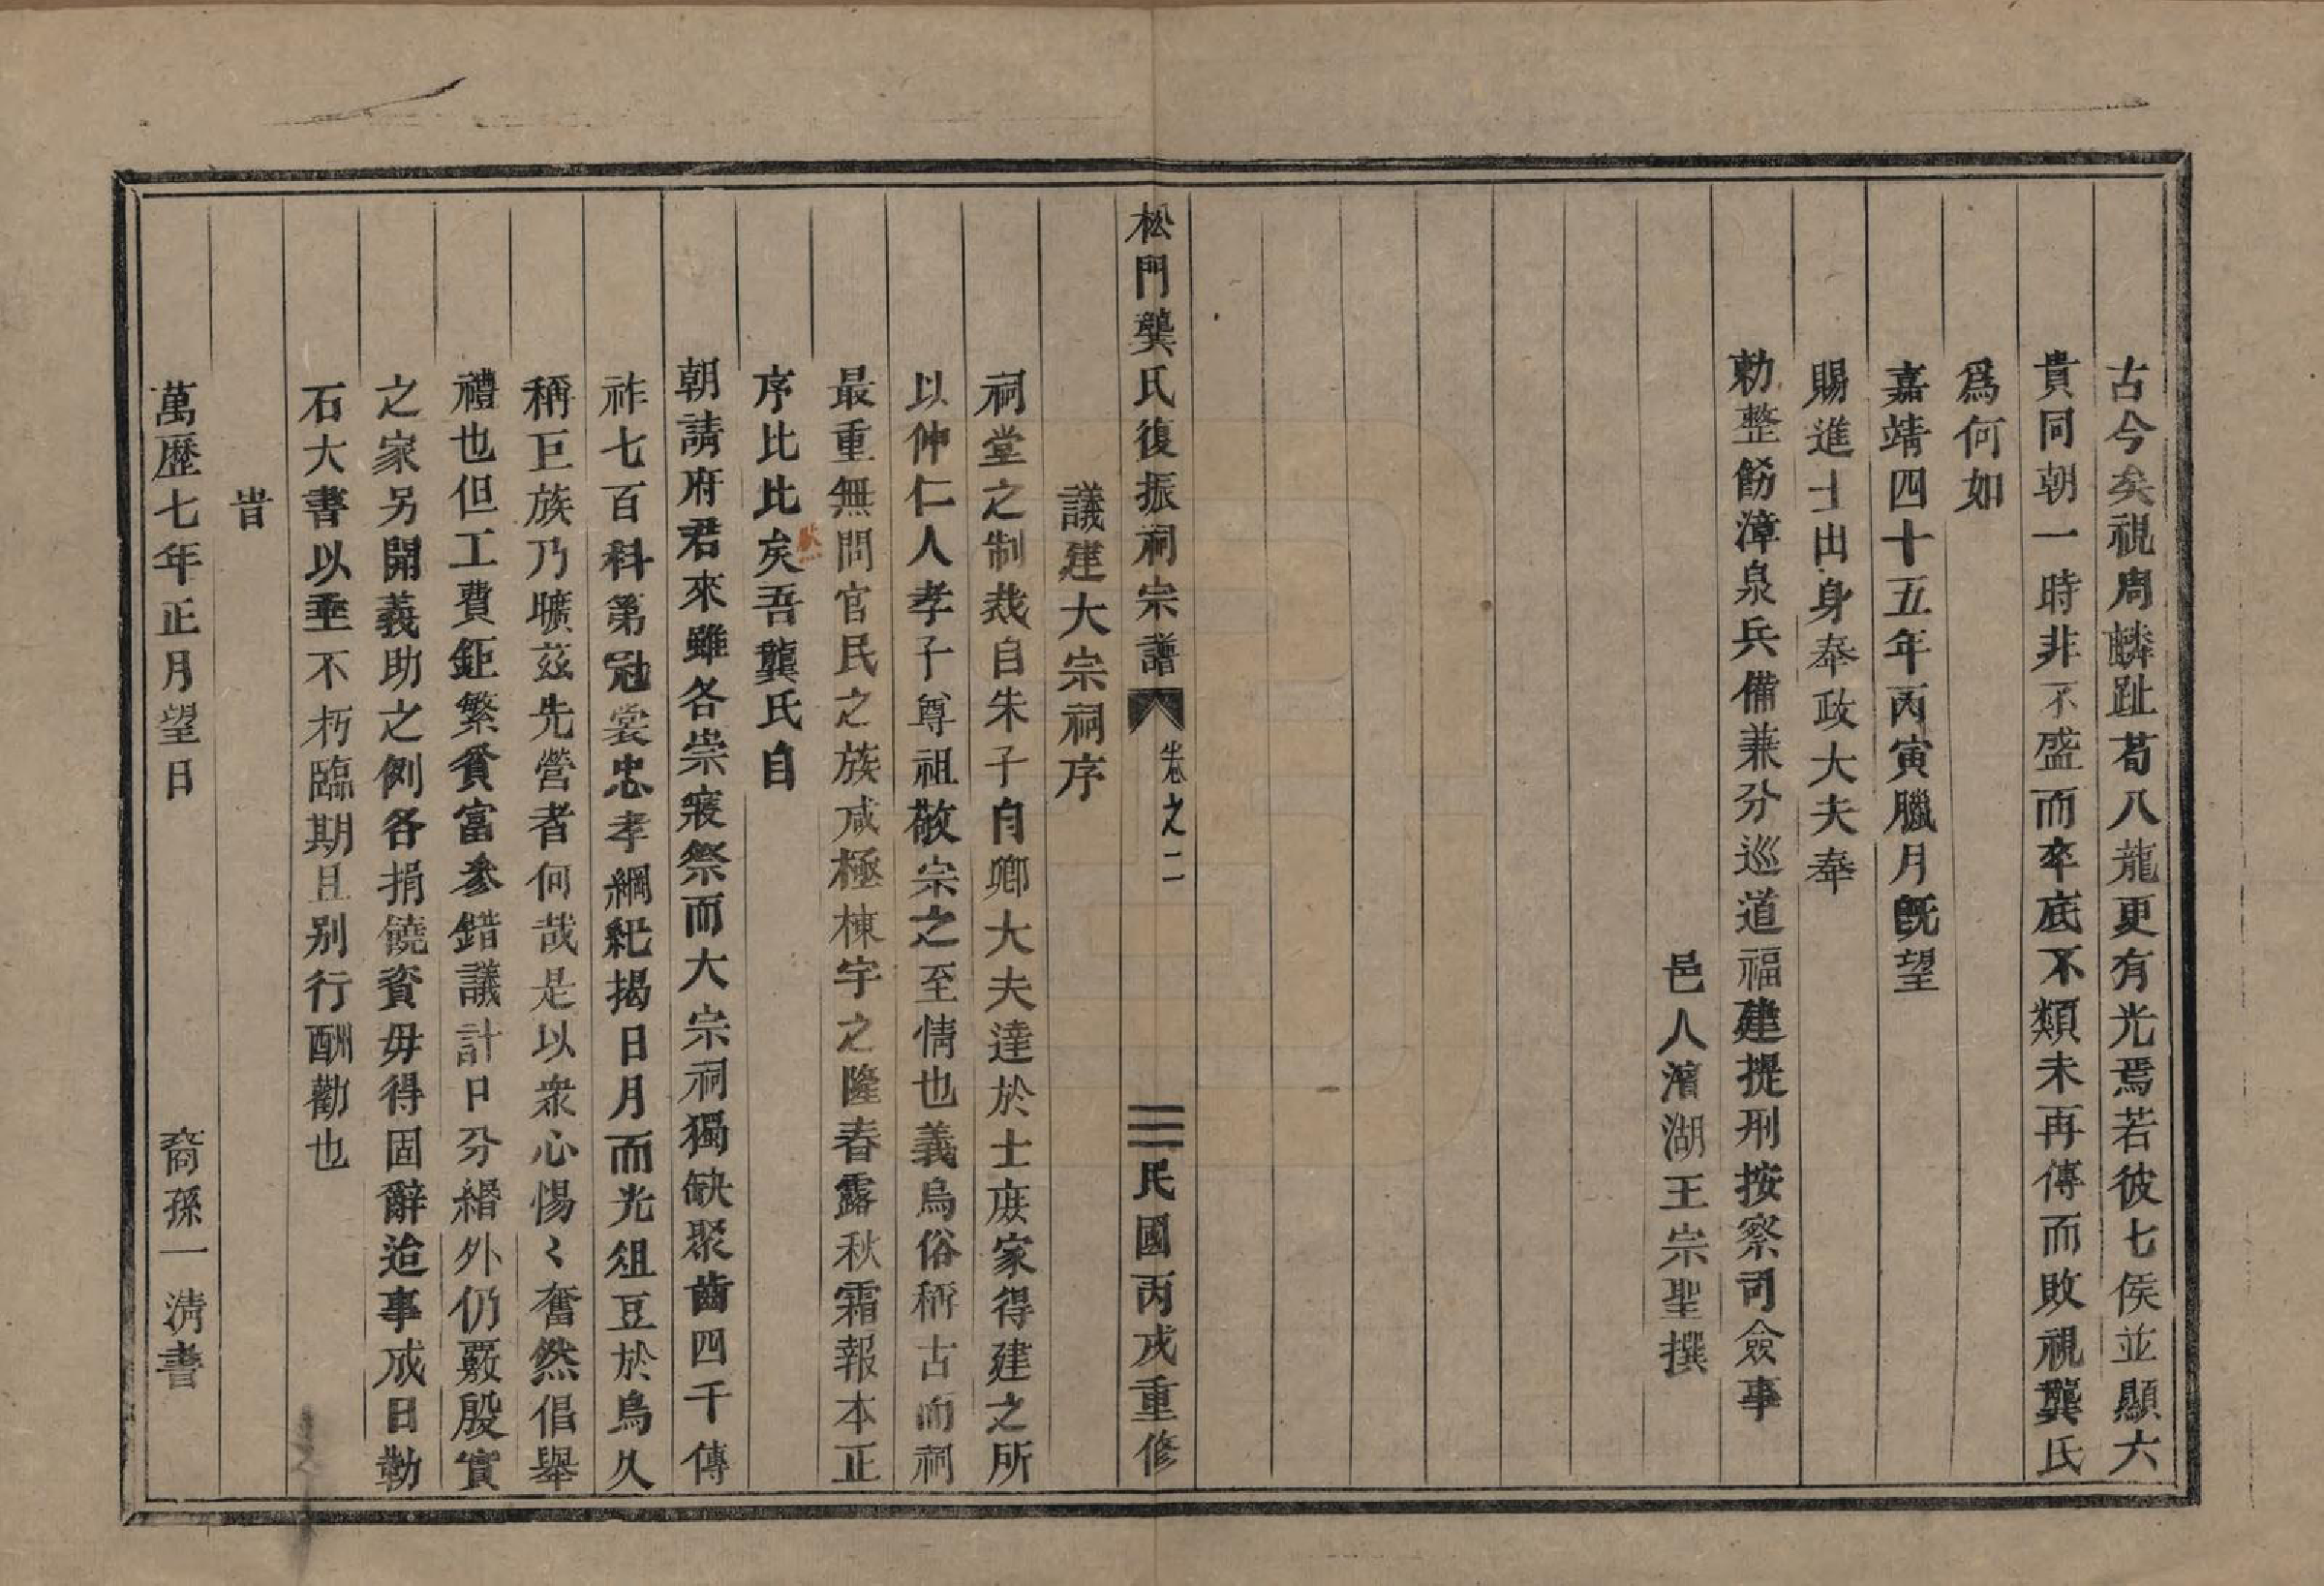 古今矣視周麟趾荀八龍更有光焉若彼七侯並顯六
貴同朝一時非不盛而卒底不類未再傳而敗視龔氏
爲何如
嘉靖四十五年丙寅臘月旣望
賜進士出身奉政大夫奉
勅整飭漳泉兵備兼分巡道福建提刑按察司僉事
邑人濱湖王宗聖撰
松門龔氏復振祠宗譜
卷之二
三
民國丙戌重修
議建大宗祠序
祠堂之制裁自朱子自卿大夫達於士庶家得建之所
以伸仁人孝子尊祖敬宗之至情也義烏俗稱古而祠
最重無問官民之族咸極棟宇之隆春露秋霜報本正
序比比矣吾龔氏自
朝請府君來雖各崇寢祭而大宗祠獨缺聚齒四千傳
祚七百科第冠裳忠孝綱紀揭日月而光俎豆於烏久
稱巨族乃曠茲先營者何哉是以衆心惕〻奮然倡舉
禮也但工費鉅繁貧富參錯議計口分緡外仍覈殷實
之家另開義助之例各捐饒資毋得固辭迨事成日勒
石大書以垂不朽臨期且别行酬勸也
旹
萬歷七年正月望日
裔孫一清書